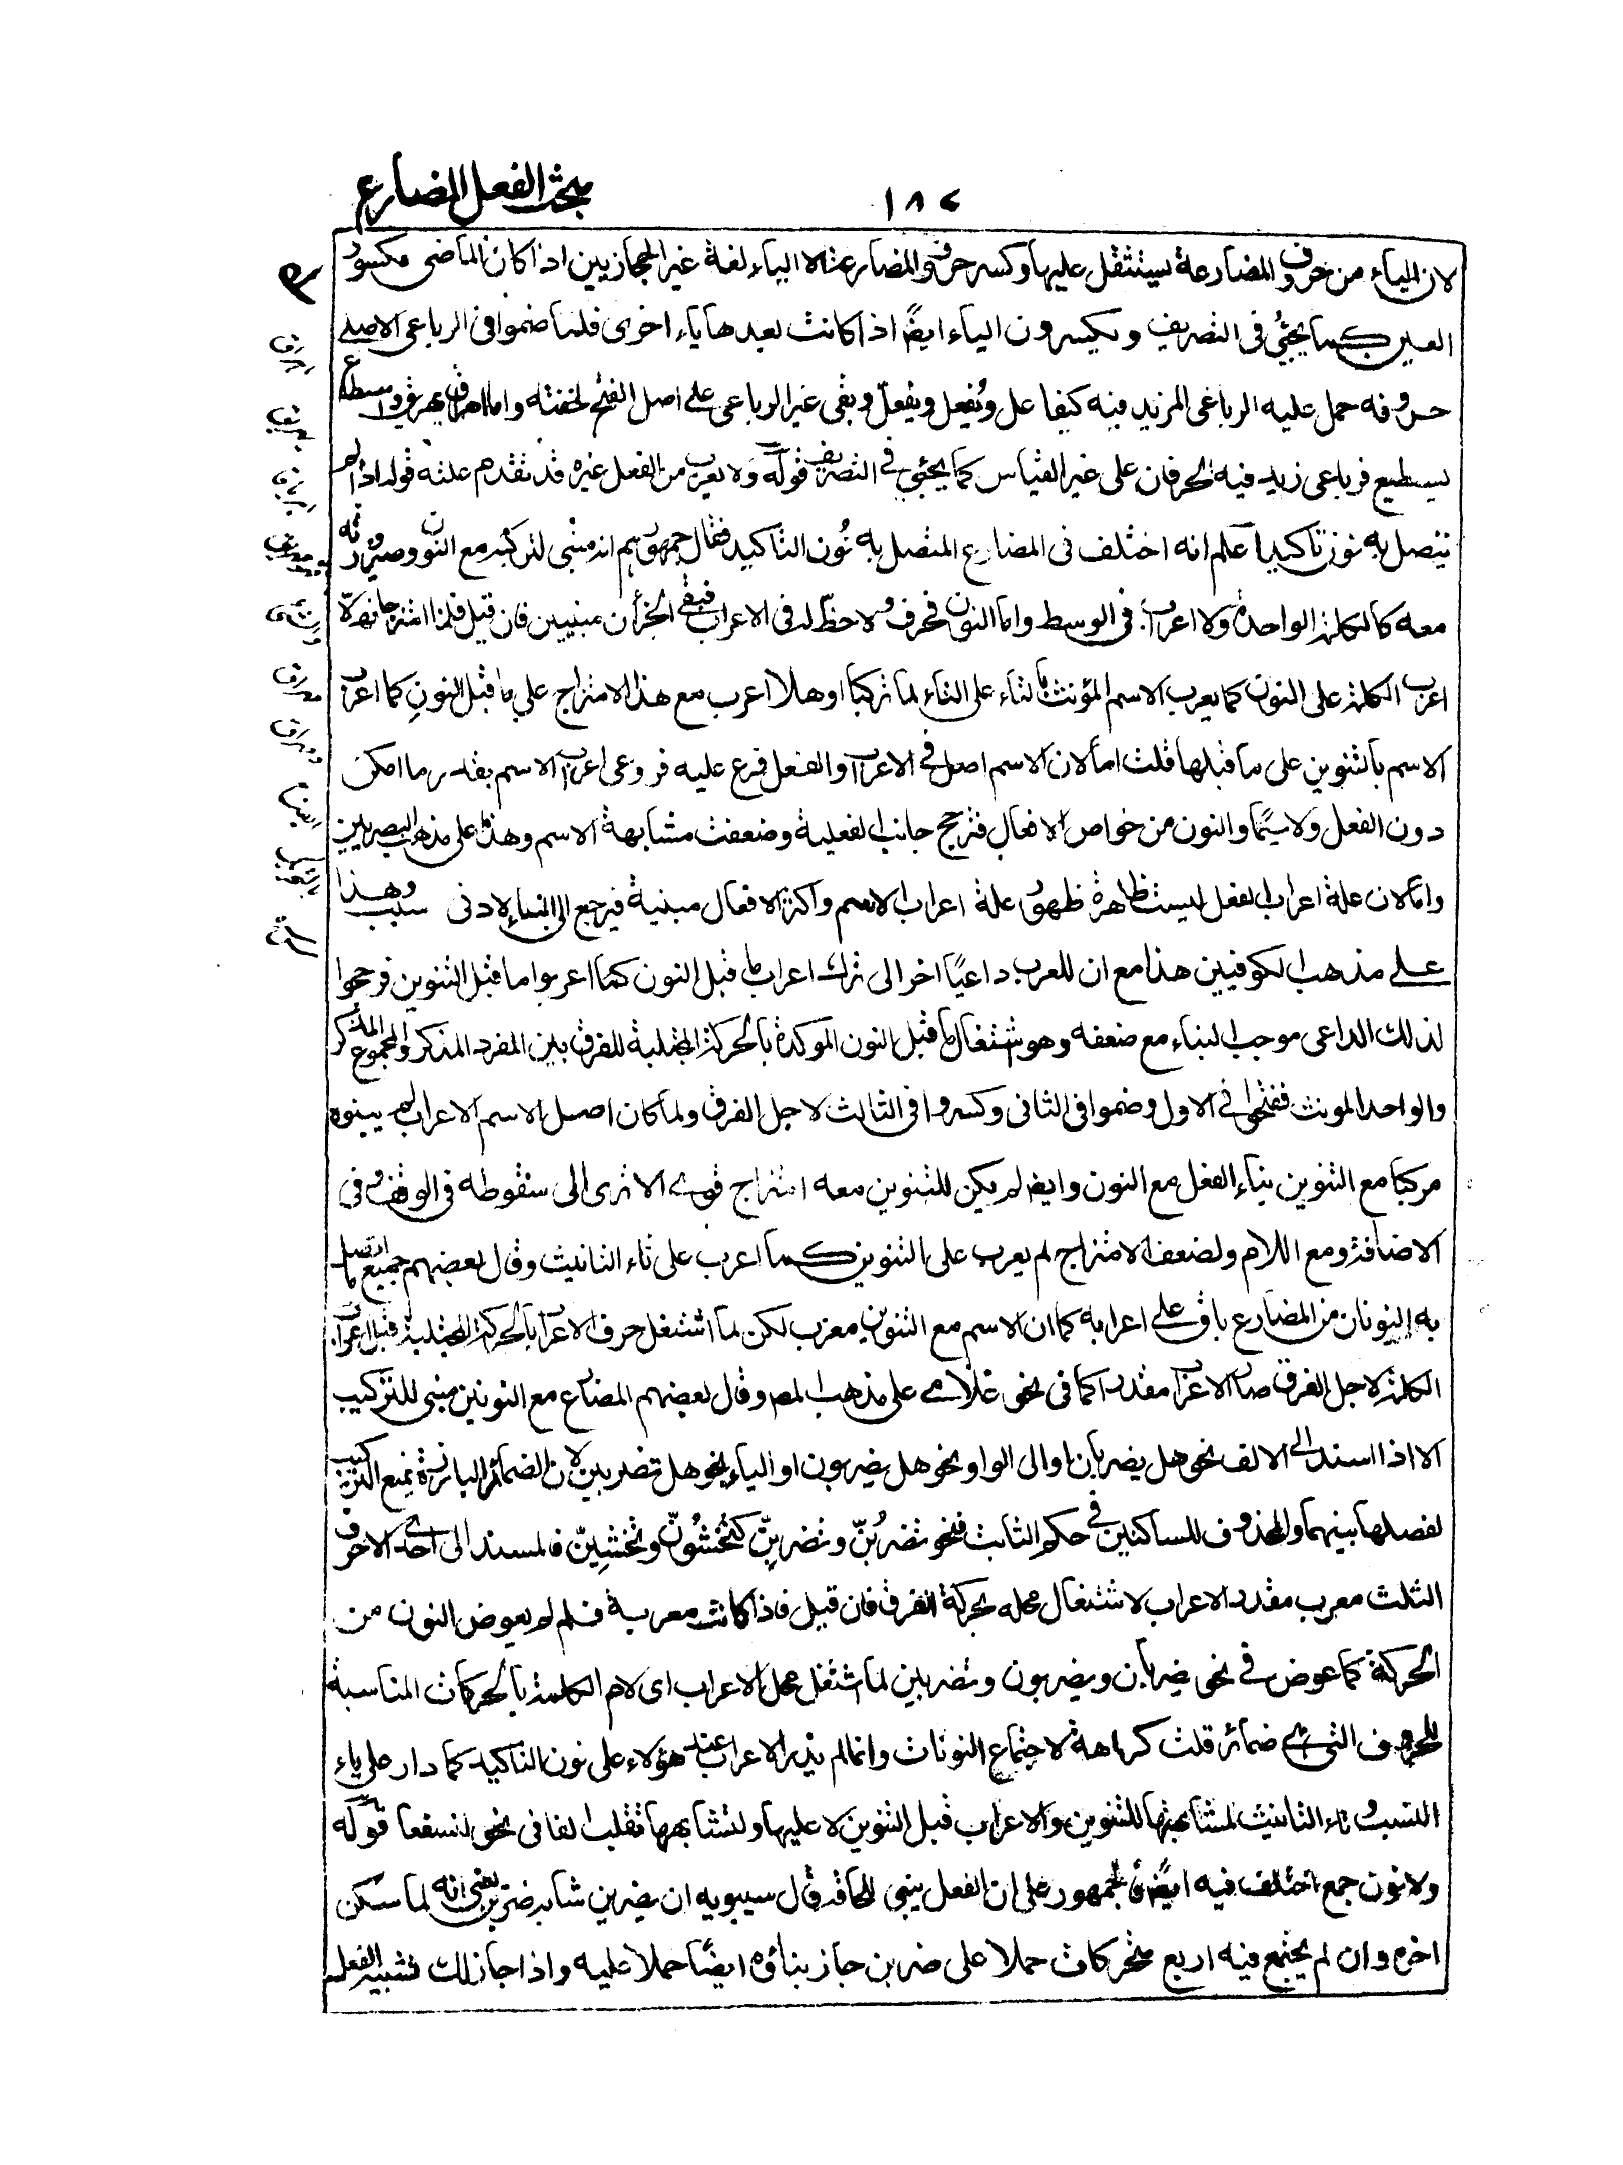 مبحث الفعل المضارع
١٨٧
لان الياء من حروف المضارعة يستثقل عليها وكسر حروف المضارعة الا الياء لغة غير الحجازيين اذا كان الماضى مكسور
العين كما يجئ فى التصريف ويكسرون الياء ايضا اذا كانت بعدها ياء اخرى فلما ضموا فى الرباعى الاصلى
حروفه حمل عليه الرباعى المزيد فيه كيفاعل ويُفعِل ويفعّل وبقى غير الرباعى على اصل الفتح لخفته واما اهراق يهريق واسطاع
يسطيع فرباعى زيد فيه الحرفان على غير القياس كما يجئ فى التصريف قوله ولا يعرب من الفعل غيره قد تقدم علته قوله اذا لم
يتصل به نون تاكيد اعلم انه اختلف فى المضارع المتصل به نُون التاكيد فقال جمهورهم انه مبنى لتركبه مع النون وصيرورته
معه كالكلمة الواحدة ولا اعراب فى الوسط واما النون فحرف ولا حظّ له فى الاعراب فبقى الجزأن مبنيين فان قيل فلما امتزجا فهلا
اعرب الكلمة على النون كما يعرب الاسم المؤنث بالتاء على التاء لما تركبا او هلا اعرب مع هذا الامتزاج على ما قبل النون كما اعرب
الاسم بالتنوين على ما قبلها قلت اما لان الاسم اصل فى الاعراب والفعل فرع عليه فروعى اعراب الاسم بقدر ما امكن
دون الفعل ولا سيّما والنون من خواص الافعال فترجح جانب الفعلية وضعفت مشابهة الاسم وهذا على مذهب البصريين
واما لان علة اعراب الفعل ليست ظاهرة ظهور علة اعراب الاسم واكثر الافعال مبنية فيرجع الى البناء لادنى سبب وهذا
على مذهب الكوفيين هذا مع ان للعرب داعيًا اخر الى ترك اعراب ما قبل النون كما اعربوا ما قبل التنوين فرجحوا
لذلك الداعى موجب البناء مع ضعفه وهو اشتغال ما قبل النون الموكدة بالحركة المجتلبة للفرق بين المفرد المذكر والمجموع المذكر
والواحد المونث ففتحوا فى الاول وضموا فى الثانى وكسروا فى الثالث لاجل الفرق ولما كان اصل الاسم الاعراب لم يبنوه
مركبا مع التنوين بناء الفعل مع النون وايضا لم يكن للتنوين معه امتزاج قوى الا ترى الى سقوطه فى الوقف وفى
الاضافة ومع اللام ولضعف الامتزاج لم يعرب على التنوين كما اعرب على تاء التانيث وقال بعضهم جميع ما اتصل
به النونان من المضارع باق على اعرابه كما ان الاسم مع التنوين معرب لكن لما اشتغل حرف الاعراب بالحركة المجتلبة قبل اعراب
الكلمة لاجل الفرق صار الاعراب مقدرا كما فى نحو غلامى على مذهب المص وقال بعضهم المضارع مع النونين مبنى للتركيب
الا اذا اسند الى الالف نحو هل يضربان او الى الواو نحو هل يضربون او الياء نحو هل تضربين لان الضمائر البارزة يمنع التركيب
لفصلها بينهما والمحذوف للساكنين فى حكم الثابت فنحو تضربُنّ وتضربِنّ كتخشوُنّ وتخشيِنّ فالمسند الى احدى الاحرف
الثلث معرب مقدر الاعراب لاشتغال محله بحركة الفرق فان قيل فاذا كانت معربة فلم لم يعوض النون من
الحركة كما عوض فى نحو يضربان ويضربون وتضربين لما اشتغل محل الاعراب اى لام الكلمة بالحركات المناسبة
للحروف التى هى ضمائر قلت كراهة لاجتماع النونات وانما لم يدر الاعراب عند هؤلاء على نون التاكيد كما دار على ياء
النسب وتاء التانيث لمشابهتها للتنوين والاعراب قبل التنوين لا عليها ولتشابهها تقلب الفا فى نحو لنسفعا قوله
ولا نون جمع اختلف فيه ايضا فالجمهور على ان الفعل يبنى للحاقه قال سيبويه ان يضربن شابه ضربن يعنى انه لما سكن
اخره وان لم يجتمع فيه اربع متحركات حملا على ضربن جاز بنائه ايضًا حملا عليه واذا جاز لك تشبيه الفعل